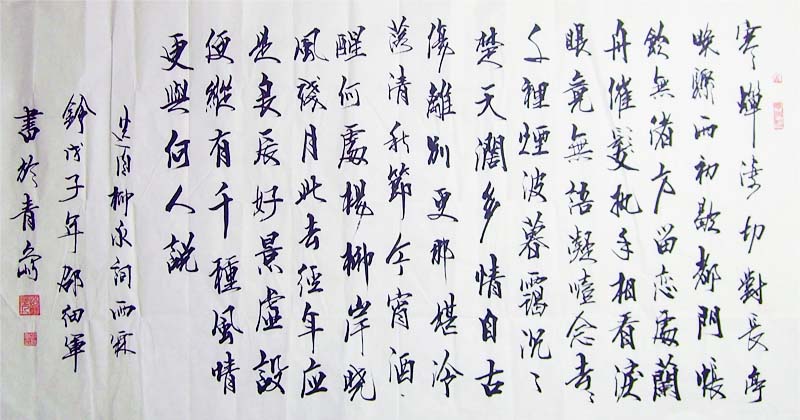 寒蟬淒切對長亭
晚驟雨初歇都門帳
飲無緒方留恋處蘭
舟催發执手相看淚
眼竟無語凝噎念去〻
千裡煙波暮靄沉〻
楚天闊多情自古
傷離別更那堪冷
落清秋節今宵酒
醒何處楊柳岸晓
風殘月此去經年应
是良辰好景虛設
便縱有千種風晴
更與何人說
柳永詞雨霖
鈴戊子年邵軍
書於青